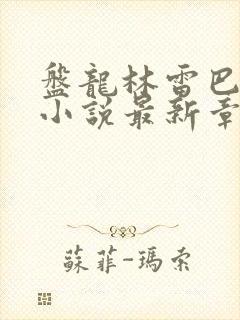 盤龍林雷巴
小説最新章
蘇菲-瑪索